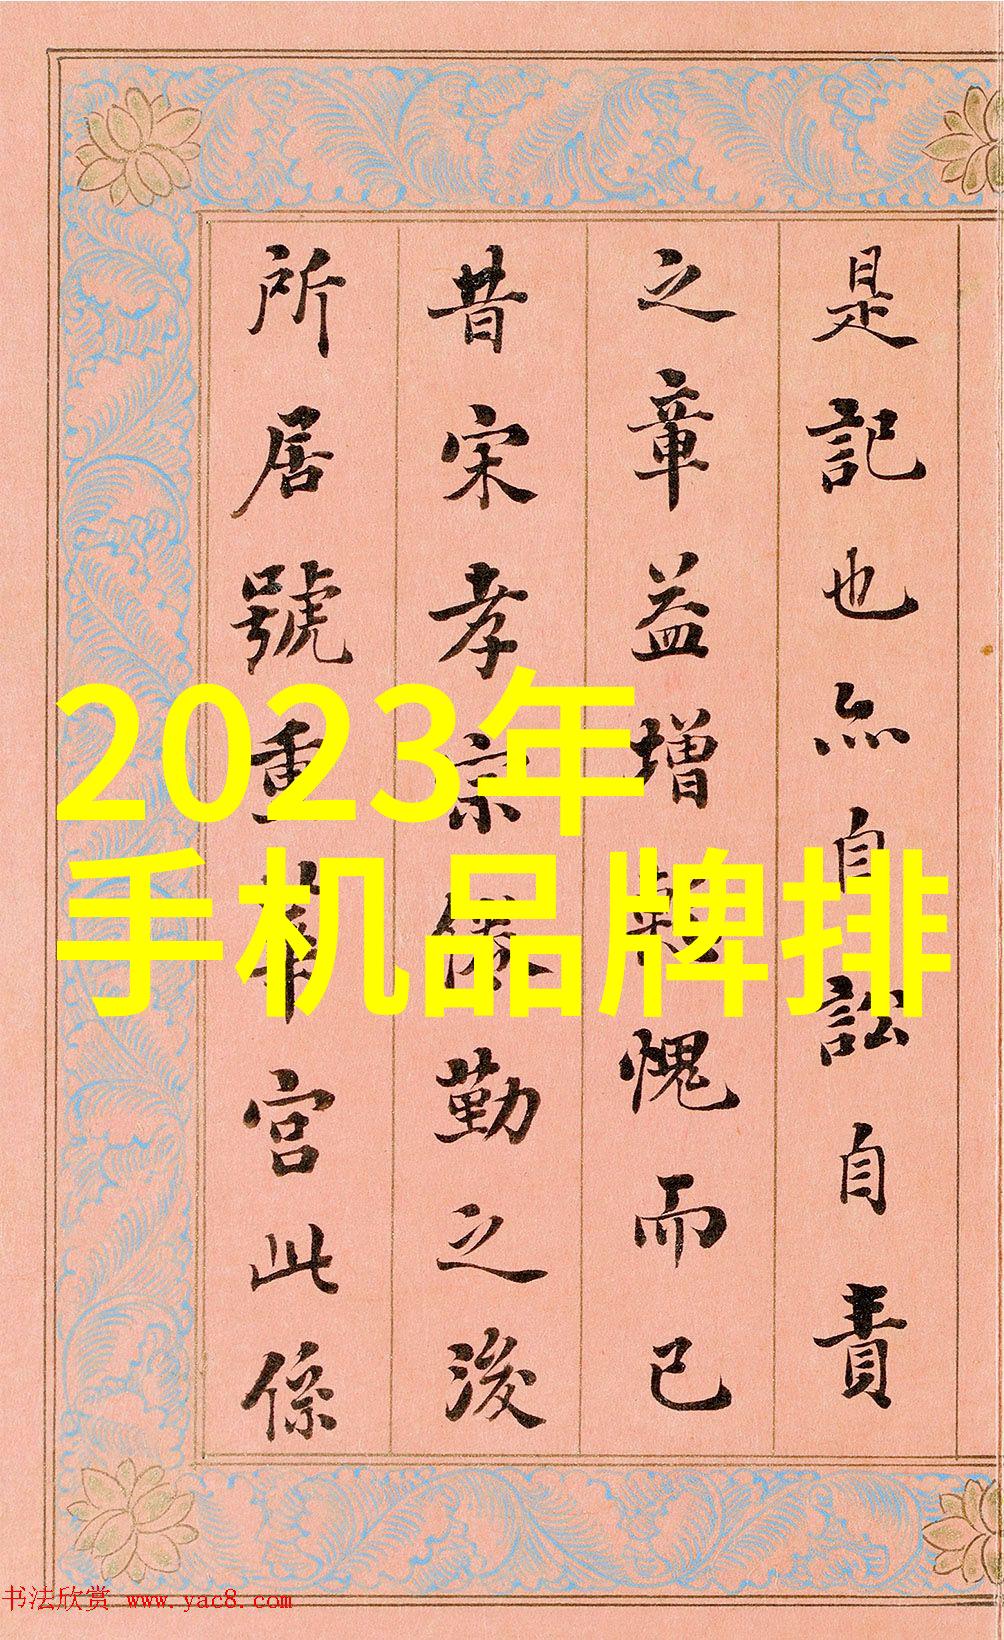 是記也亦自訟自責
之章益增赧愧而已
昔宋孝宗倦勤之後
所居號重華宮此係
2023年
手机品牌排
书法欣赏 www.yac8.com